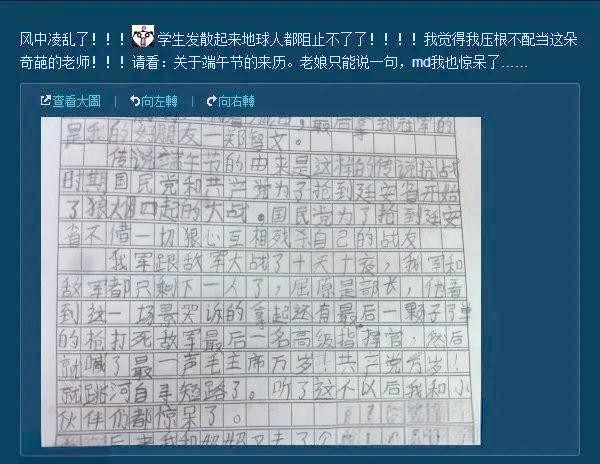 风中凌乱了！！！学生发散起来地球人都阻止不了了！！！！我觉得我压根不配当这朵
奇葩的老师！！！请看：关于端午节的来历。老娘只能说一句，md我也惊呆了……
查看大圖 | 向左轉 | 向右轉
最后拿到冠军的
是我的好朋友一郑智文。
传说端午节的由来是这样的传说抗战
时期国民党和共产党为了抢到延安省开始
了狼火四起的大战。国民党为了抢到延安
省不惜一切狠心互相残杀自己的战友
我军跟敌军大战了十天十夜，我军和
敌军都只剩下一人了，屈原是部长，他看
到这一场景哭诉的拿起还有最后一颗子弹
的枪打死敌军最后一名高级指挥官，然后
就喊了最一声毛主席万岁！共产党万岁！
就跳河自寻短路了。听了这个以后我和小
伙伴们都惊呆了。
后来我和妈妈又去了